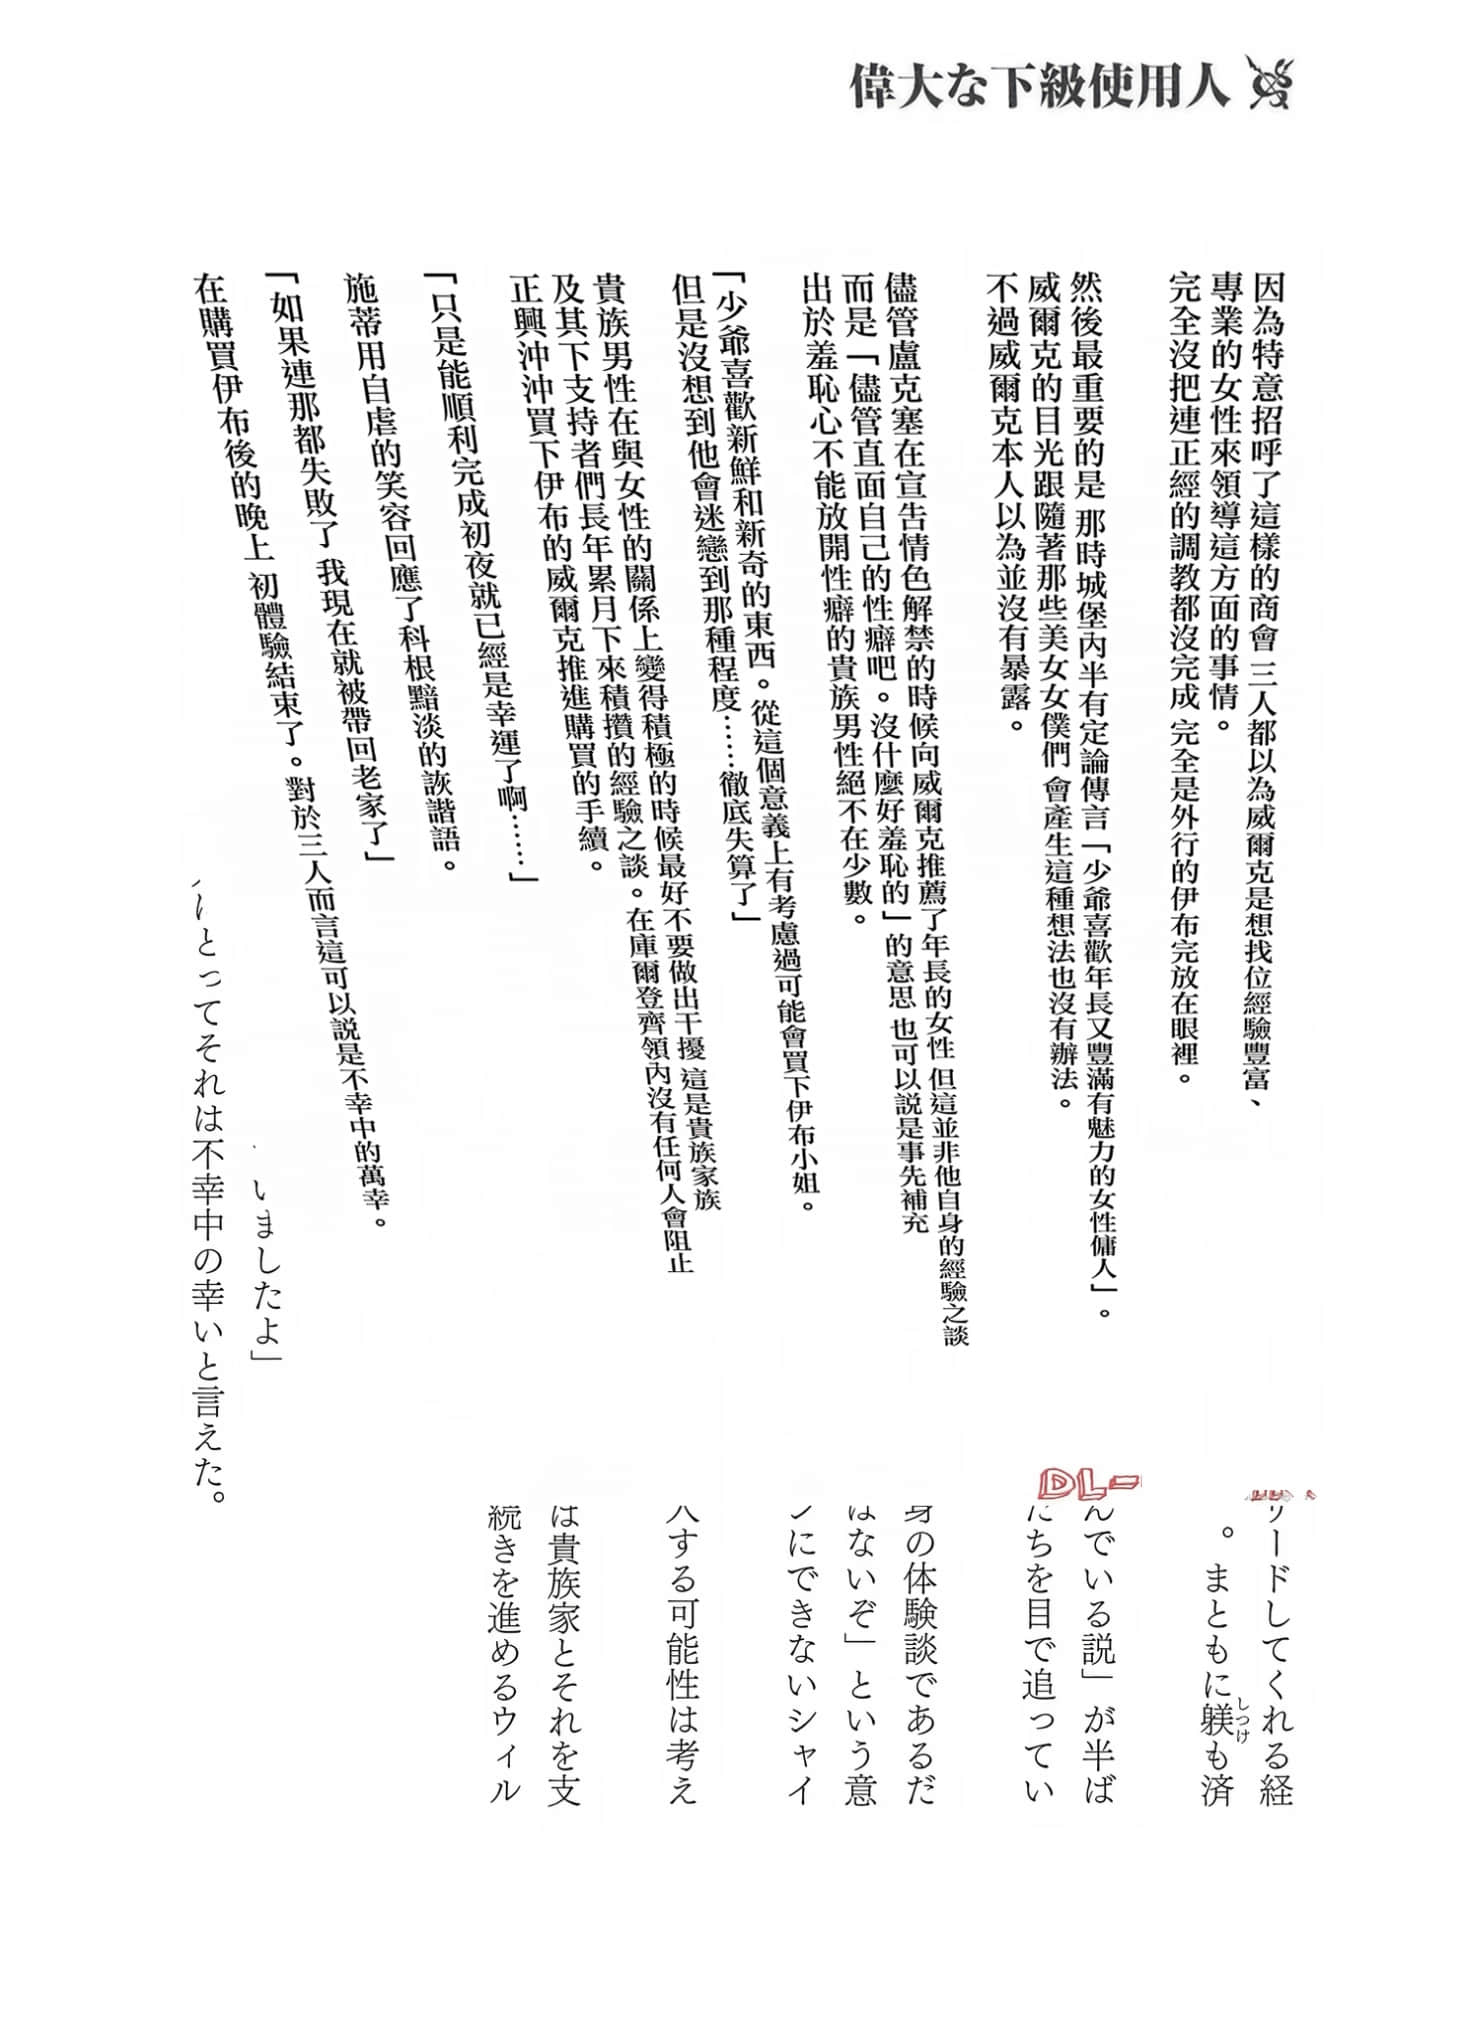 偉大な下級使用人
因為特意招呼了這樣的商會 三人都以為威爾克是想找位經驗豐富、
專業的女性來領導這方面的事情。
完全沒把連正經的調教都沒完成 完全是外行的伊布完放在眼裡。
然後最重要的是 那時城堡內半有定論傳言「少爺喜歡年長又豐滿有魅力的女性傭人」。
威爾克的目光跟隨著那些美女女僕們 會產生這種想法也沒有辦法。
不過威爾克本人以為並沒有暴露。
儘管盧克塞在宣告情色解禁的時候向威爾克推薦了年長的女性 但這並非他自身的經驗之談
而是「儘管直面自己的性癖吧。沒什麼好羞恥的」的意思 也可以說是事先補充
出於羞恥心不能放開性癖的貴族男性絕不在少數。
「少爺喜歡新鮮和新奇的東西。從這個意義上有考慮過可能會買下伊布小姐。
但是沒想到他會迷戀到那種程度……徹底失算了」
貴族男性在與女性的關係上變得積極的時候最好不要做出干擾 這是貴族家族
及其下支持者們長年累月下來積攢的經驗之談。在庫爾登齊領內沒有任何人會阻止
正興沖沖買下伊布的威爾克推進購買的手續。
「只是能順利完成初夜就已經是幸運了啊……」
施蒂用自虐的笑容回應了科根黯淡的詼諧語。
「如果連那都失敗了 我現在就被帶回老家了」
在購買伊布後的晚上 初體驗結束了。對於三人而言這可以說是不幸中的萬幸。
ードしてくれる経
。まともに躾も済
しつけ
んでいる説」が半ば
たちを目で追ってい
身の体験談であるだ
はないぞ」という意
にできないシャイ
する可能性は考え
は貴族家とそれを支
続きを進めるウィル
いましたよ」
とってそれは不幸中の幸いと言えた。
DL-